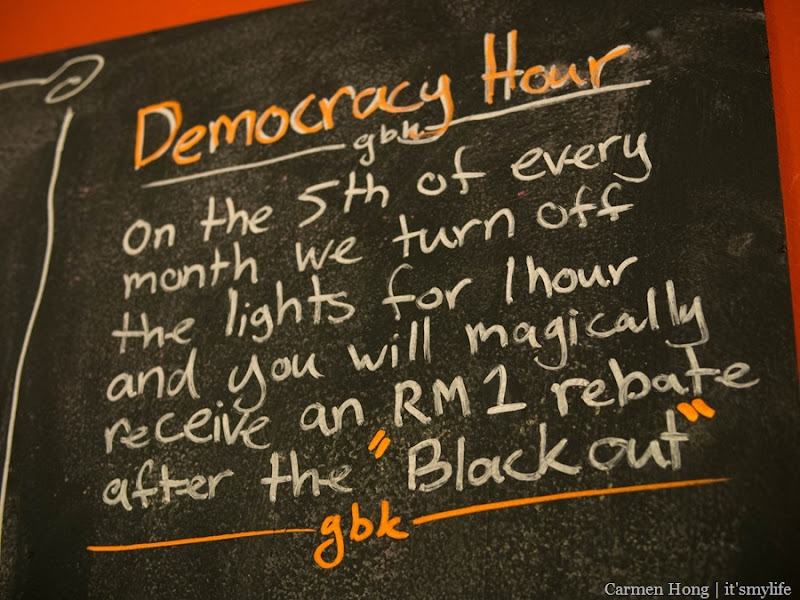 Democracy Hour
gbk
On the 5th of every
month we turn off
the lights for 1hour
and you will magically
receive an RM1 rebate
after the "Blackout"
gbk
Carmen Hong | it'smylife